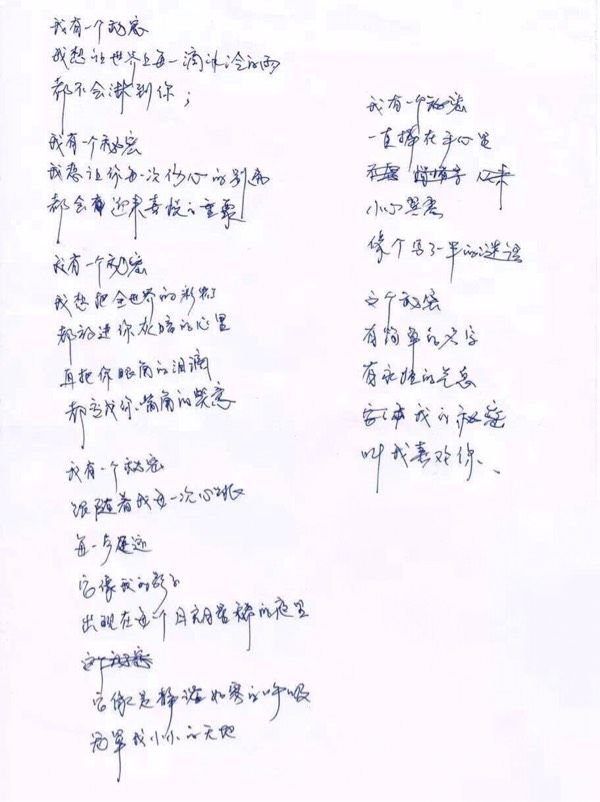 我有一个秘密
我想让世界上每一滴冰冷的雨
都不会淋到你；
我有一个秘密
我想让你每一次伤心的别离
都会有迎来喜悦的重聚
我有一个秘密
我想把全世界的彩虹
都放进你灰暗的心里
再把你眼角的泪滴
都变成你嘴角的笑意
我有一个秘密
跟随着我每一次心跳
每一步足迹
它像我的影子
出现在每个月亮的夜里
这个秘密
它像是静谧如寒的呼吸
笼罩我小小的天地
我有一个秘密
一直捧在手心里
小心翼翼
像个写了一半的谜语
这个秘密
有简单的名字
有永恒的气息
我的秘密
叫我喜欢你、